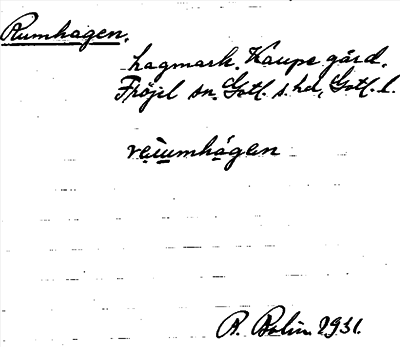 Rumhagen.
hagmark. Kaupe gård.
Fröjel sn. Gotl. s. hd, Gotl. l.
reiumhágen
1931.